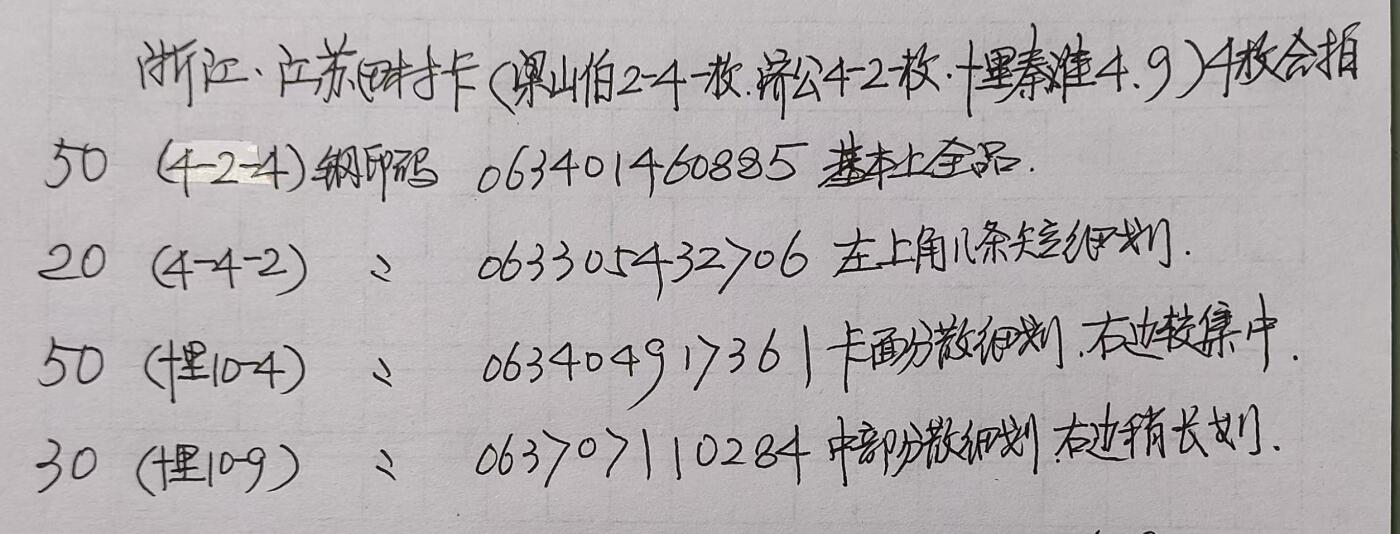 浙江、江苏田村卡(梁山伯2-4一枚.济公4-2一枚.十里秦淮4.9)4枚合拍
50 (4-2-4)钢印码 063401460885 基本上全品.
20 (4-4-2) 〃 063305432706 左上角几条短细划.
50 (十里10-4) 〃 063404917361 卡面分散细划.右边较集中.
30 (十里10-9) 〃 063707110284 中部分散细划.右边稍长划.